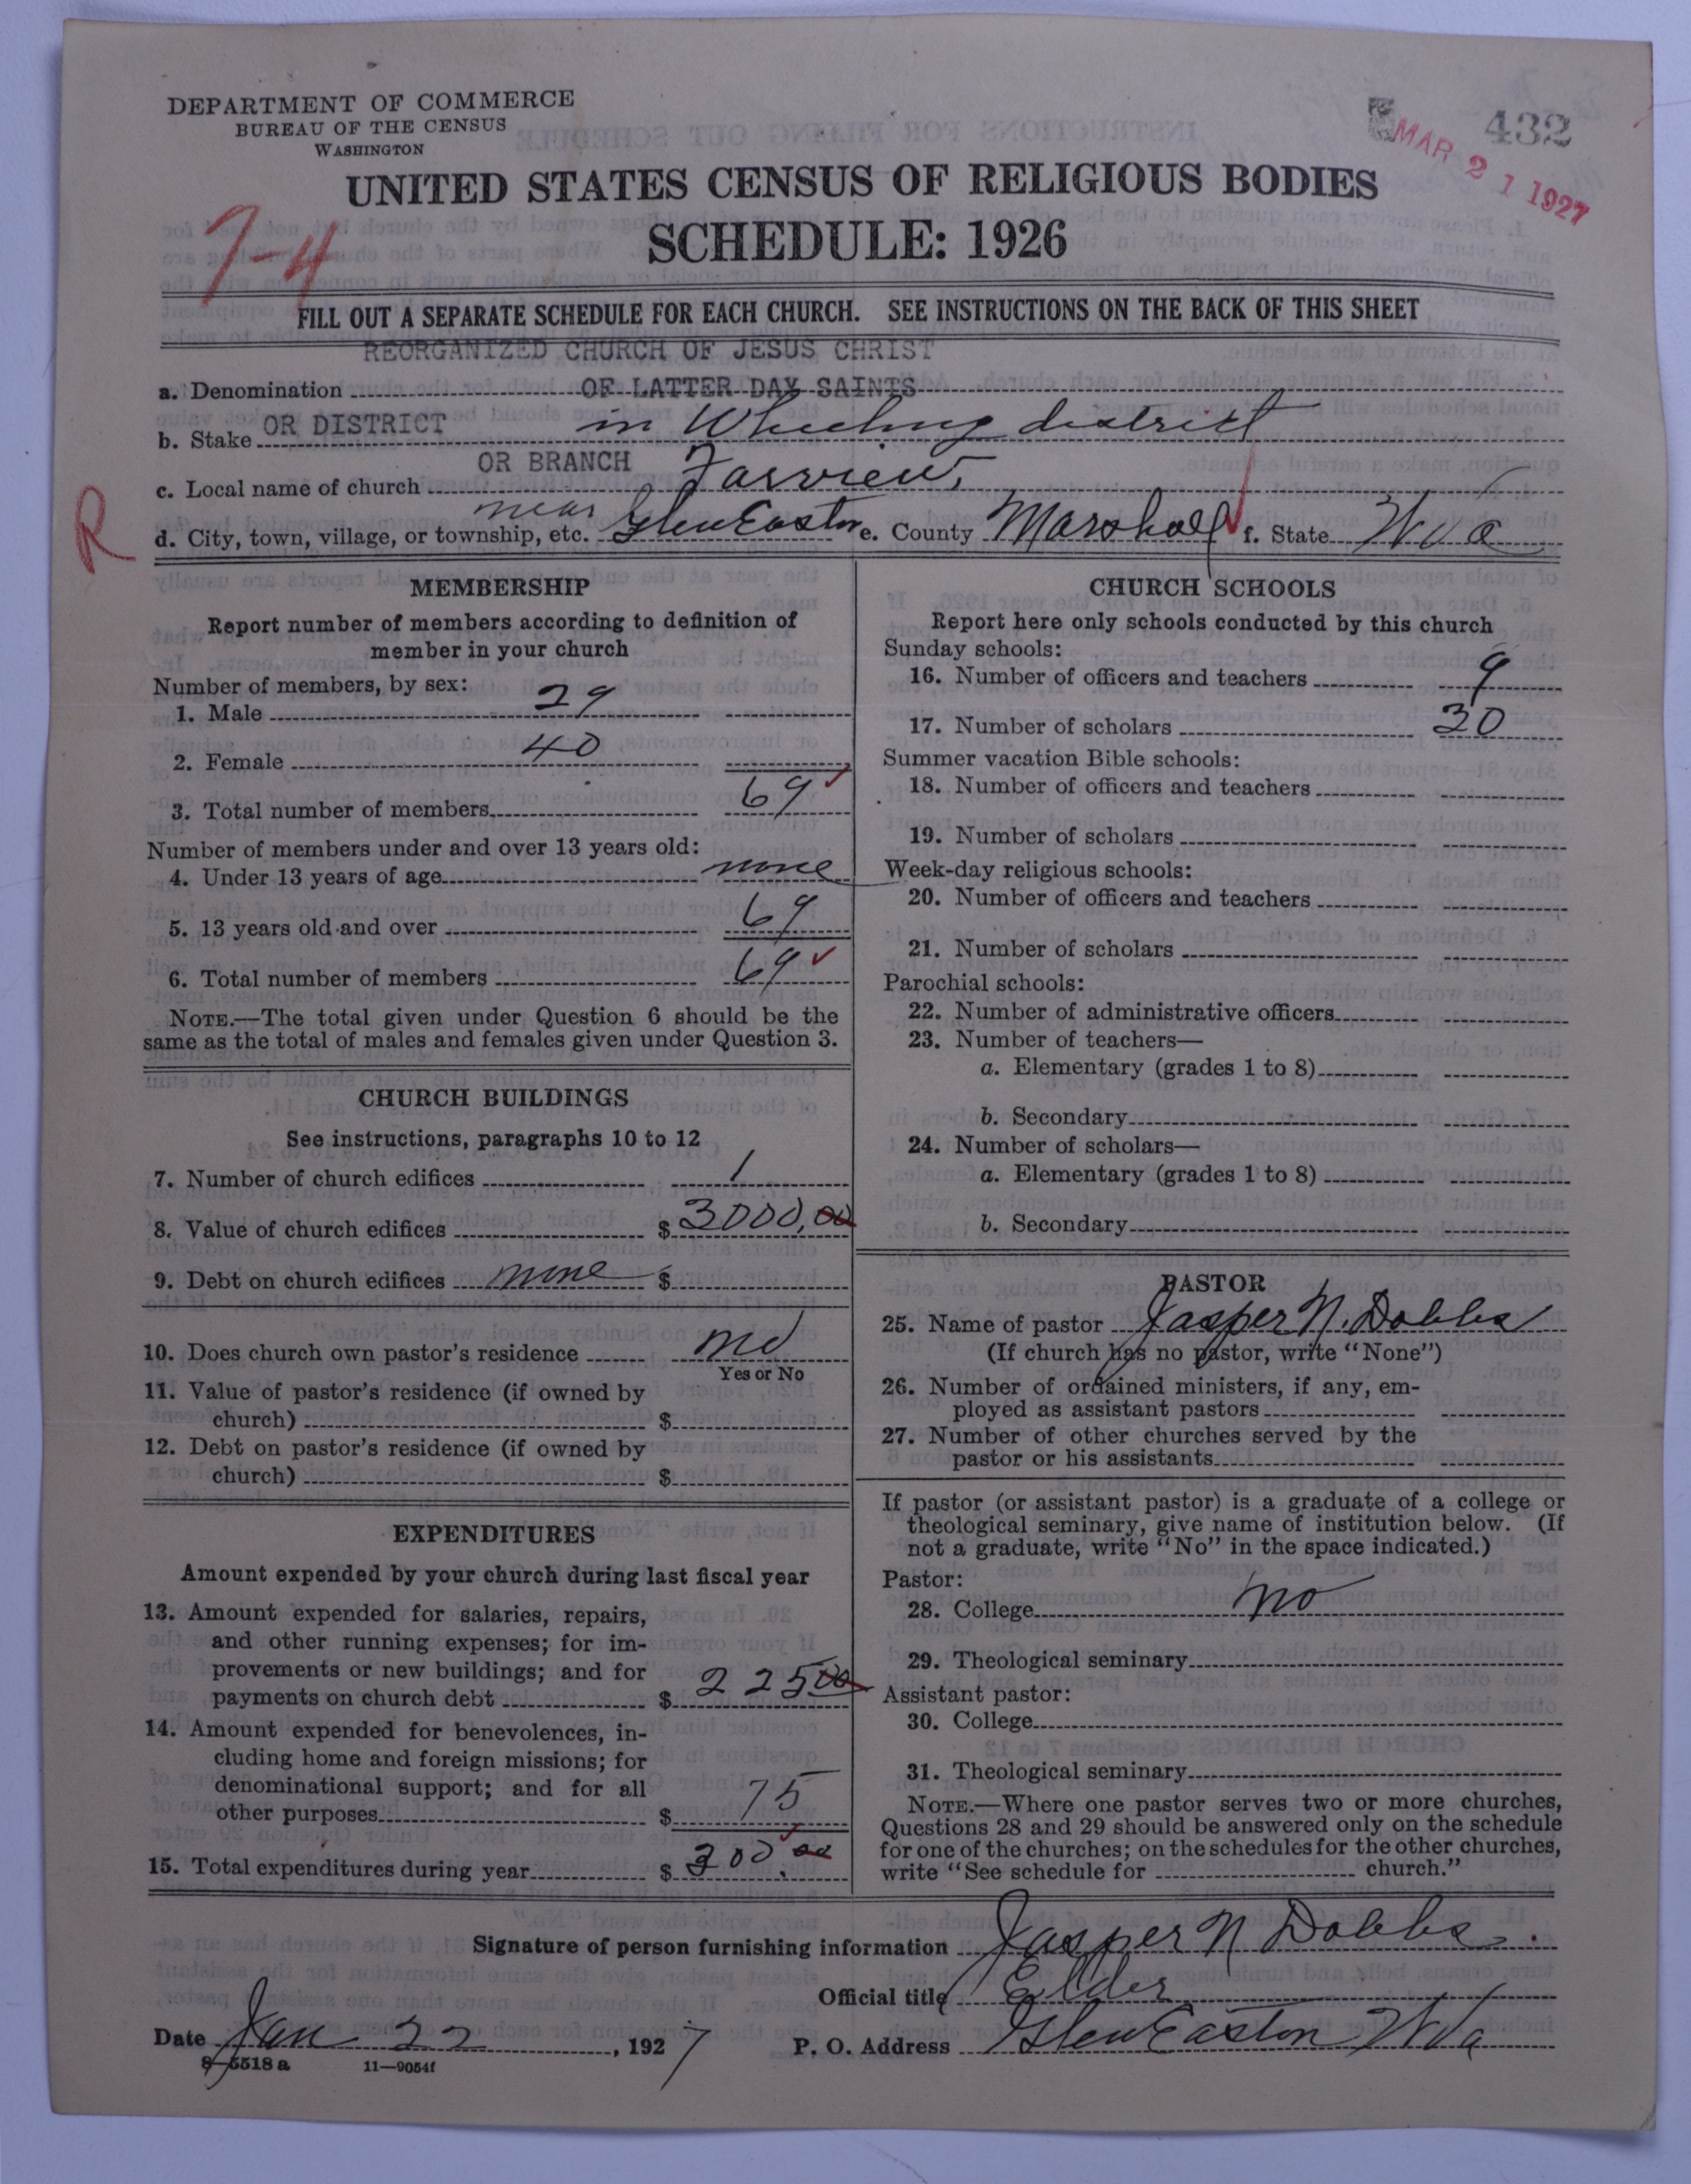 DEPARTMENT OF COMMERCE
BUREAU OF THE CENSUS
WASHINGTON
432
MAR 21 1927
UNITED STATES CENSUS OF RELIGIOUS BODIES
SCHEDULE: 1926
7-4
FILL OUT A SEPARATE SCHEDULE FOR EACH CHURCH. SEE INSTRUCTIONS ON THE BACK OF THIS SHEET
REORGANIZED CHURCH OF JESUS CHRIST
a. Denomination OF LATTER DAY SAINTS
b. Stake OR DISTRICT in Wheeling district
OR BRANCH
c. Local name of church Fairview,
R
d. City, town, village, or township, etc. near Glen Easton e. County Marshall f. State W Va
MEMBERSHIP
Report number of members according to definition of
member in your church
Number of members, by sex:
1. Male 29
2. Female 40
3. Total number of members 69
Number of members under and over 13 years old:
4. Under 13 years of age none
5. 13 years old and over 69
6. Total number of members 69
NOTE.—The total given under Question 6 should be the
same as the total of males and females given under Question 3.
CHURCH BUILDINGS
See instructions, paragraphs 10 to 12
7. Number of church edifices 1
8. Value of church edifices $ 3000,00
9. Debt on church edifices none $
10. Does church own pastor's residence no
Yes or No
11. Value of pastor's residence (if owned by
church) $
12. Debt on pastor's residence (if owned by
church) $
EXPENDITURES
Amount expended by your church during last fiscal year
13. Amount expended for salaries, repairs,
and other running expenses; for im-
provements or new buildings; and for
payments on church debt $ 225 00
14. Amount expended for benevolences, in-
cluding home and foreign missions; for
denominational support; and for all
other purposes $ 75
15. Total expenditures during year $ 300.00
CHURCH SCHOOLS
Report here only schools conducted by this church
Sunday schools:
16. Number of officers and teachers 9
17. Number of scholars 30
Summer vacation Bible schools:
18. Number of officers and teachers
19. Number of scholars
Week-day religious schools:
20. Number of officers and teachers
21. Number of scholars
Parochial schools:
22. Number of administrative officers
23. Number of teachers—
a. Elementary (grades 1 to 8)
b. Secondary
24. Number of scholars—
a. Elementary (grades 1 to 8)
b. Secondary
PASTOR
25. Name of pastor Jasper N. Dobbs
(If church has no pastor, write "None")
26. Number of ordained ministers, if any, em-
ployed as assistant pastors
27. Number of other churches served by the
pastor or his assistants
If pastor (or assistant pastor) is a graduate of a college or
theological seminary, give name of institution below. (If
not a graduate, write "No" in the space indicated.)
Pastor:
28. College no
29. Theological seminary
Assistant pastor:
30. College
31. Theological seminary
NOTE.—Where one pastor serves two or more churches,
Questions 28 and 29 should be answered only on the schedule
for one of the churches; on the schedules for the other churches,
write "See schedule for church."
Signature of person furnishing information Jasper N Dobbs
Official title Elder
Date Jan 22, 1927 P. O. Address Glen Easton W Va
8—5518 a 11—9054f